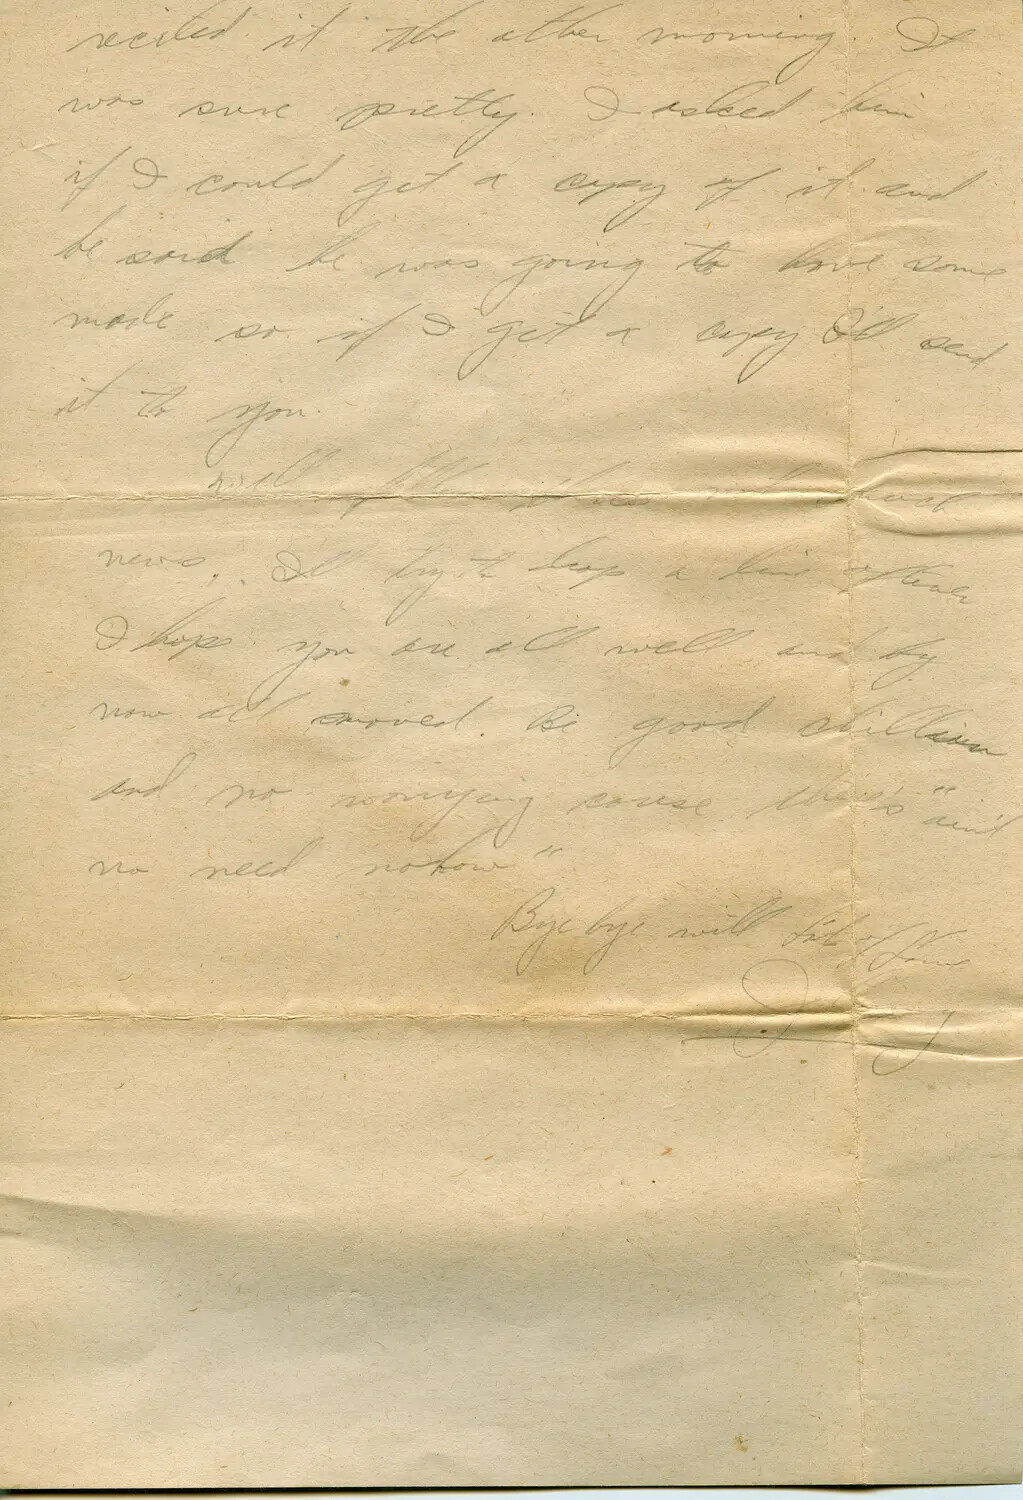 recited it the other morning. It
was sure pretty. I asked him
if I could get a copy of it and
he said he was going to have some
made so if I get a copy I'll send
it to you.
Well folks not much
news. I'll try to drop a line often
I hope you are all well and by
now all moved. Be good chillun
and no worrying cause there's "ain't
no need nohow"
Bye bye with lots of love